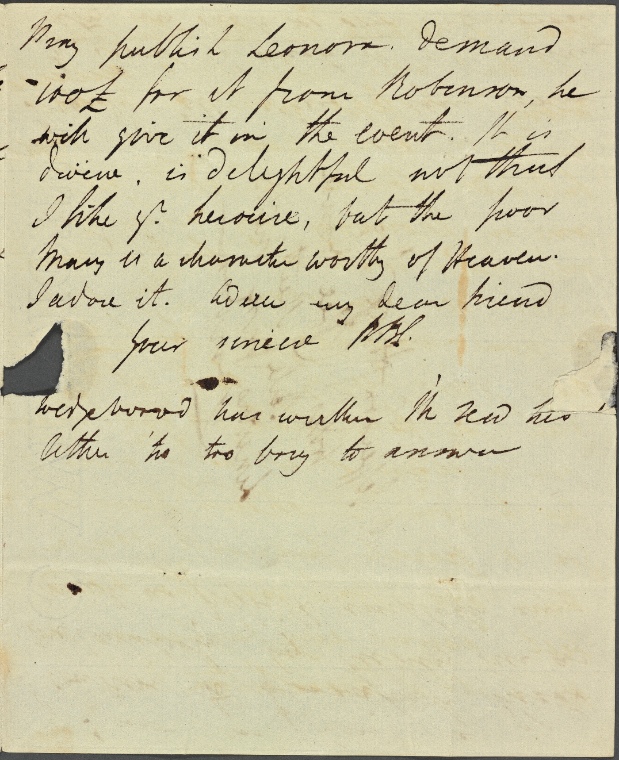 Pray publish Leonora. demand
100£ for it from Robinson, he
will give it in the event. It is
divine, is delightful not that
I like yr. heroine, but the poor
Mary is a character worthy of Heaven.
I adore it. adieu my dear friend
your sincere
Wedgwood has written I'll send his
letter 'tis too long to answer